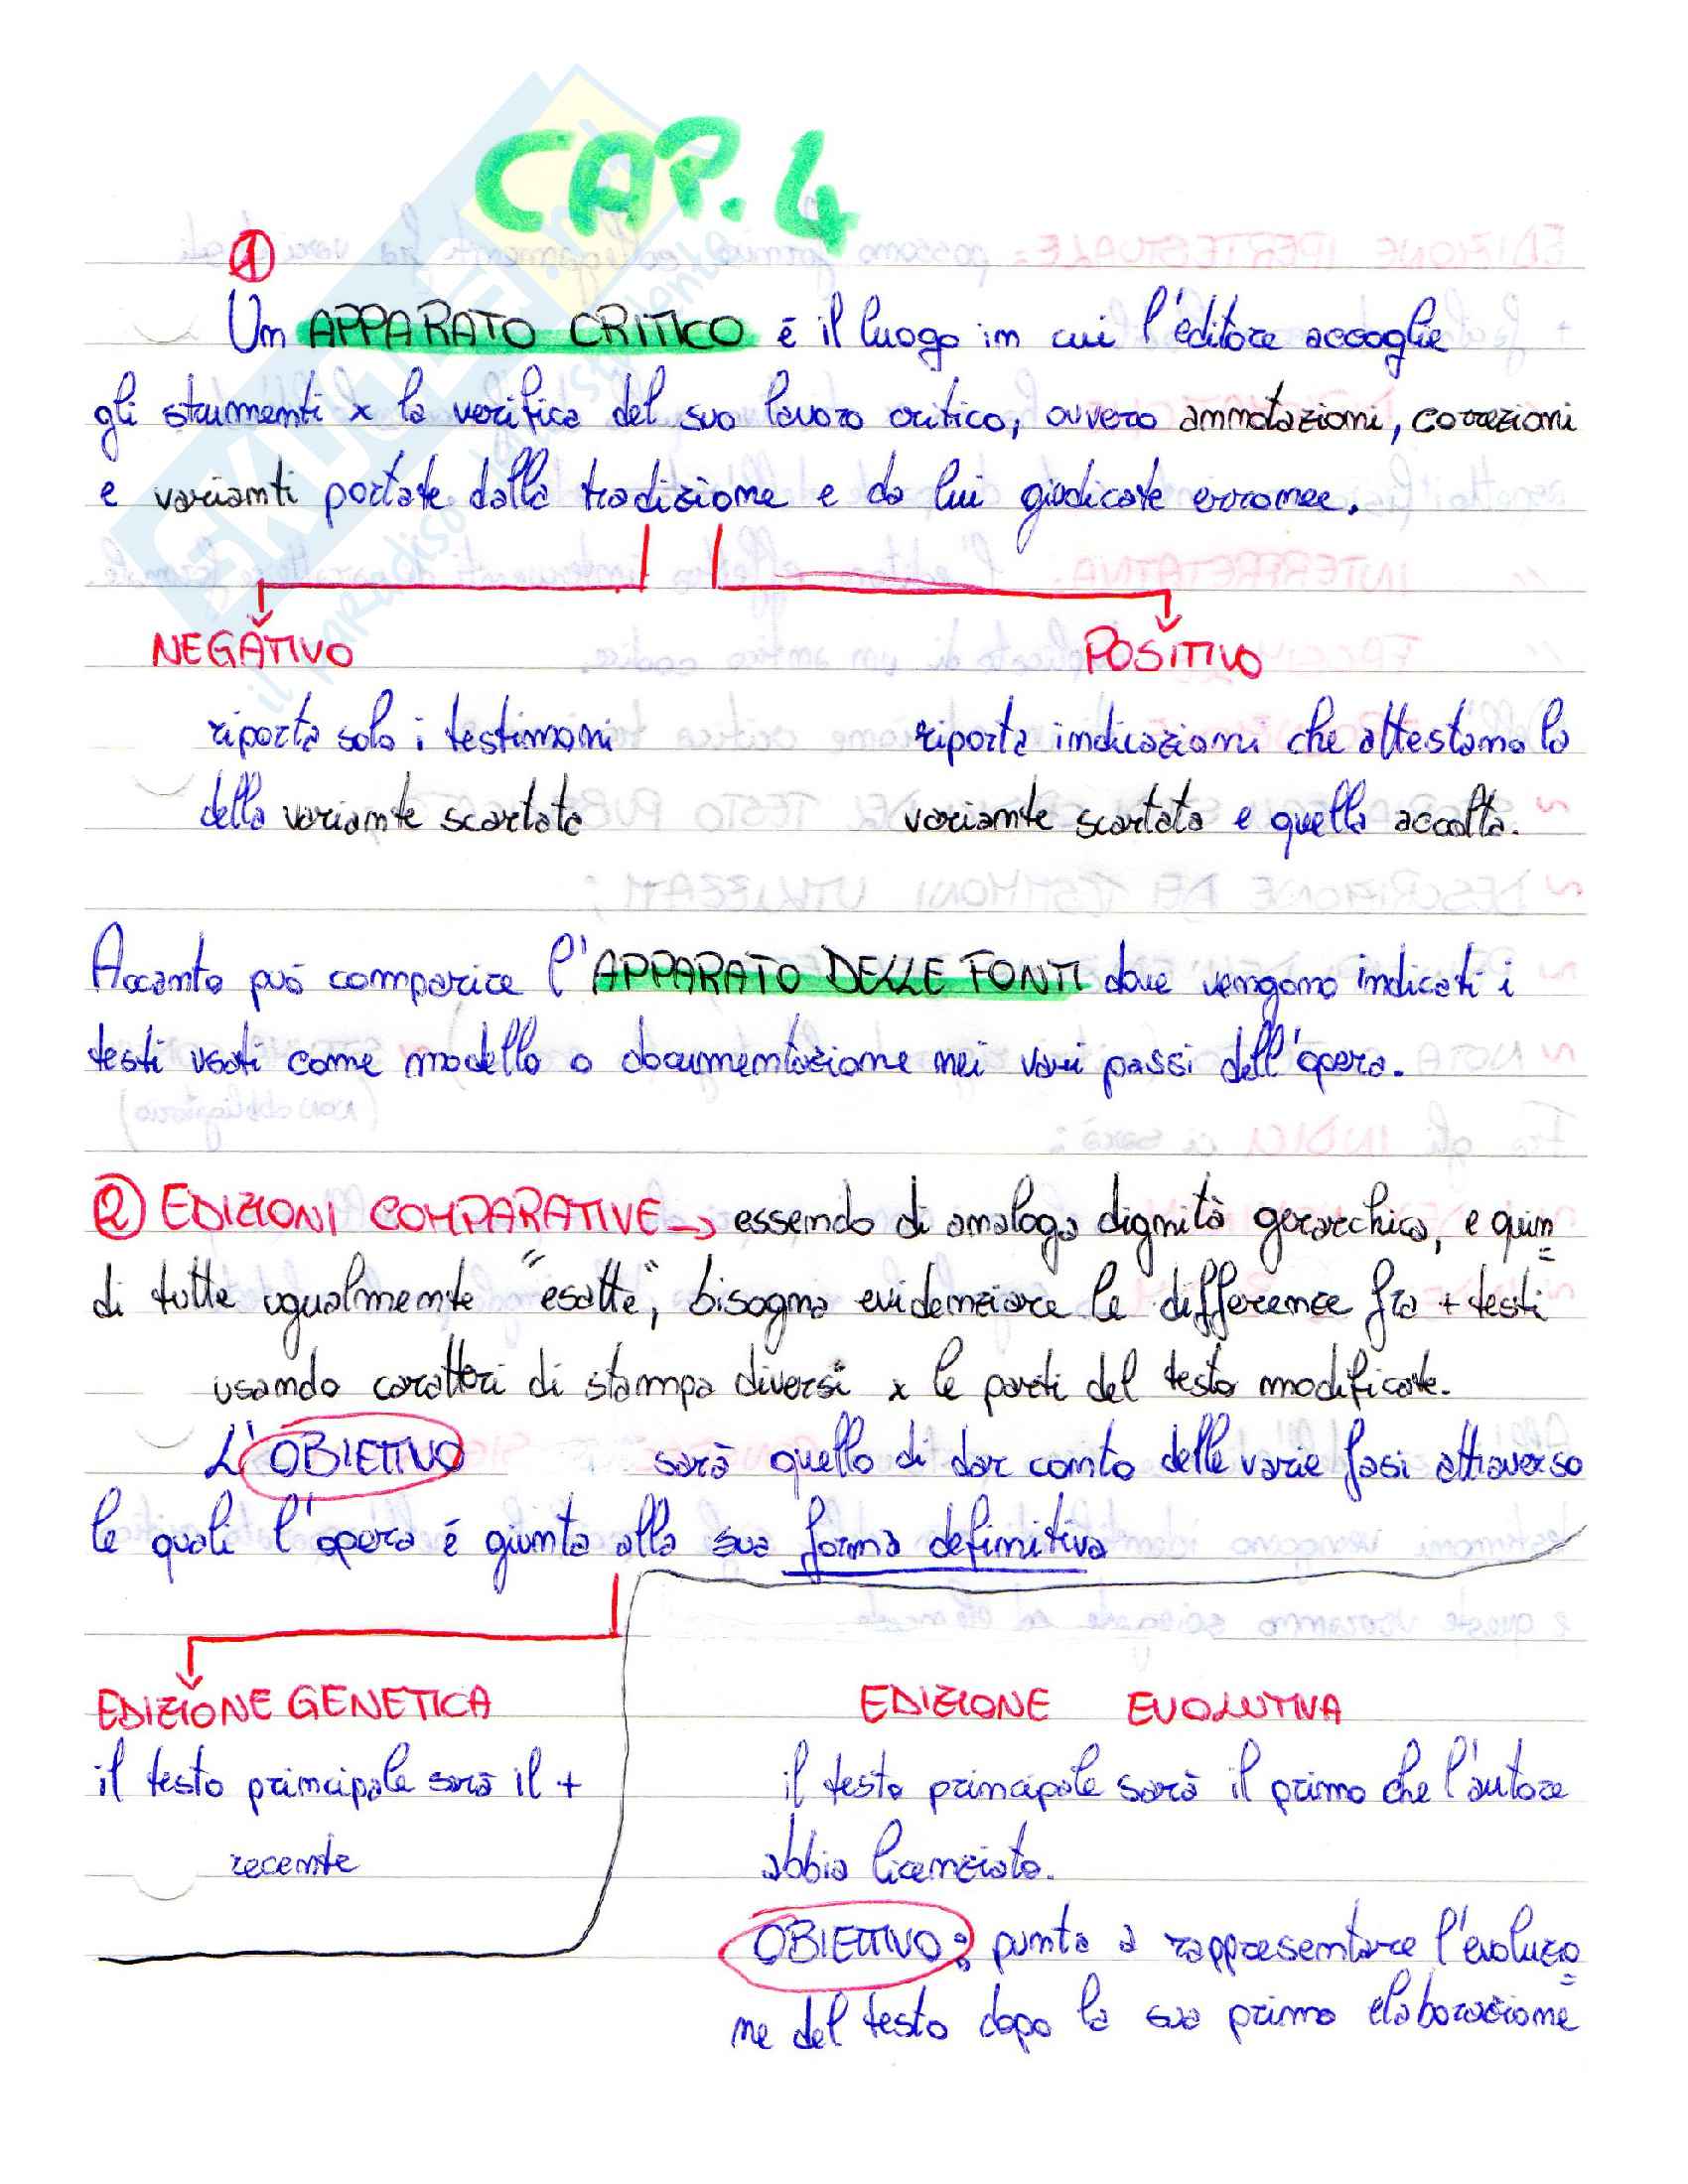 CAP. 4
1
Un APPARATO CRITICO è il luogo in cui l'editore accoglie
gli strumenti x la verifica del suo lavoro critico, ovvero annotazioni, correzioni
e varianti portate dalla tradizione e da lui giudicate erronee.
NEGATIVO POSITIVO
riporta solo i testimoni riporta indicazioni che attestano la
della variante scartata variante scartata e quella accolta.
Accanto può comparire l'APPARATO DELLE FONTI dove vengono indicati i
testi usati come modello o documentazione nei vari passi dell'opera.
2 EDIZIONI COMPARATIVE → essendo di analoga dignità gerarchica, e quin=
di tutte ugualmente "esatte", bisogna evidenziare le differenze fra + testi
usando caratteri di stampa diversi x le parti del testo modificate.
L'OBIETTIVO sarà quello di dar conto delle varie fasi attraverso
le quali l'opera è giunta alla sua forma definitiva
EDIZIONE GENETICA EDIZIONE EVOLUTIVA
il testo principale sarà il + il testo principale sarà il primo che l'autore
recente abbia licenziato.
OBIETTIVO: punta a rappresentare l'evoluzio=
ne del testo dopo la sua prima elaborazione
SKUOLA.net
il paradiso dello studente